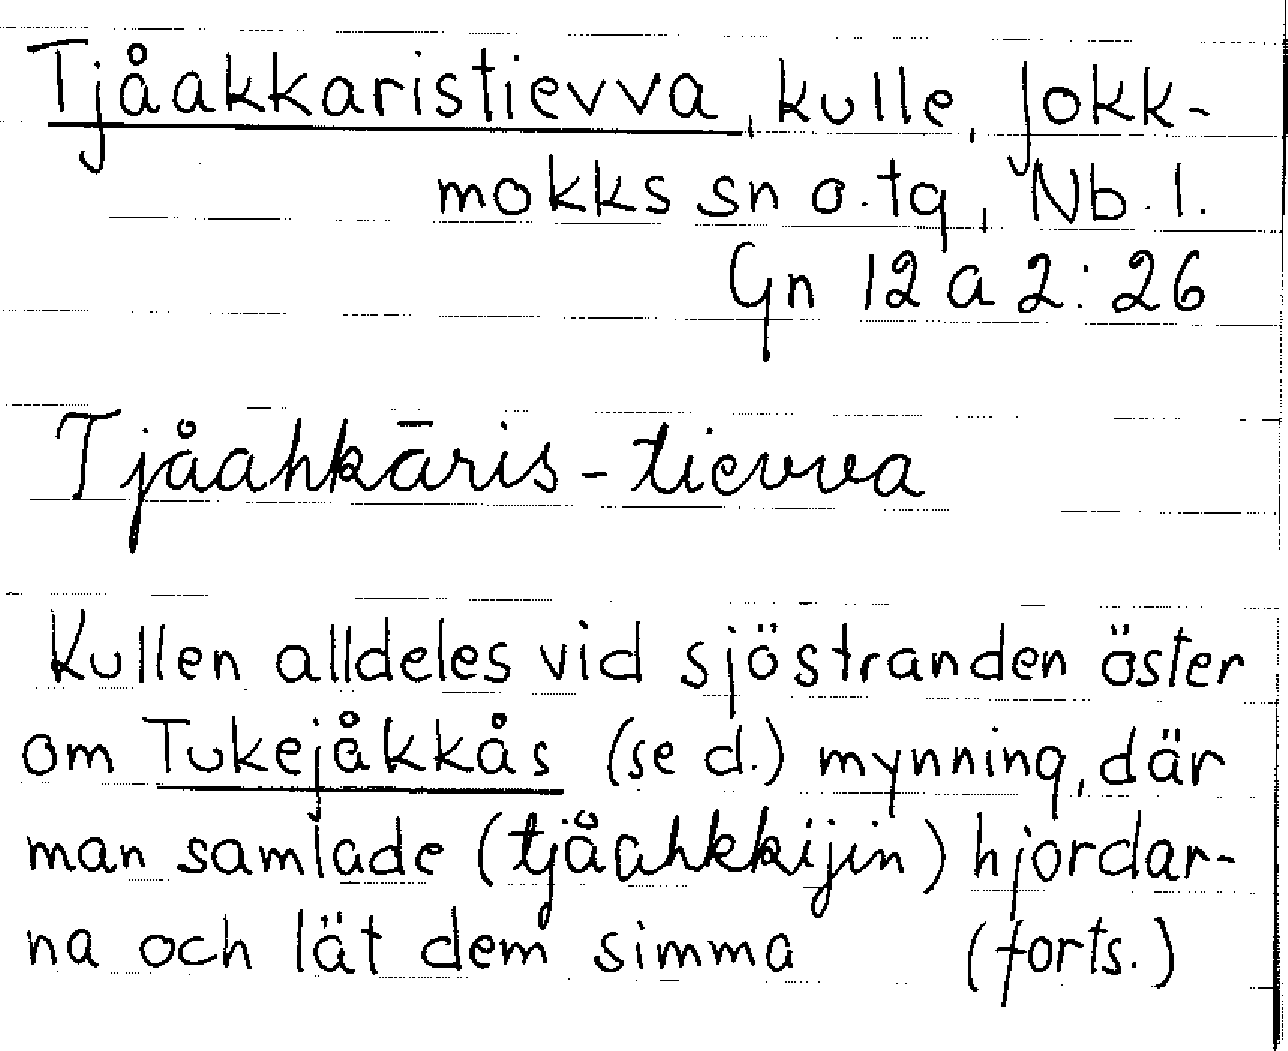 Tjåakkaristievva, kulle, Jokk-
mokks sn o. tg, Nb. l.
Gn 12 a 2: 26
Tjåahkāris-tievva
Kullen alldeles vid sjöstranden öster
om Tukejåkkås (se d.) mynning, där
man samlade (tjåahkkijin) hjordar-
na och lät dem simma (forts.)